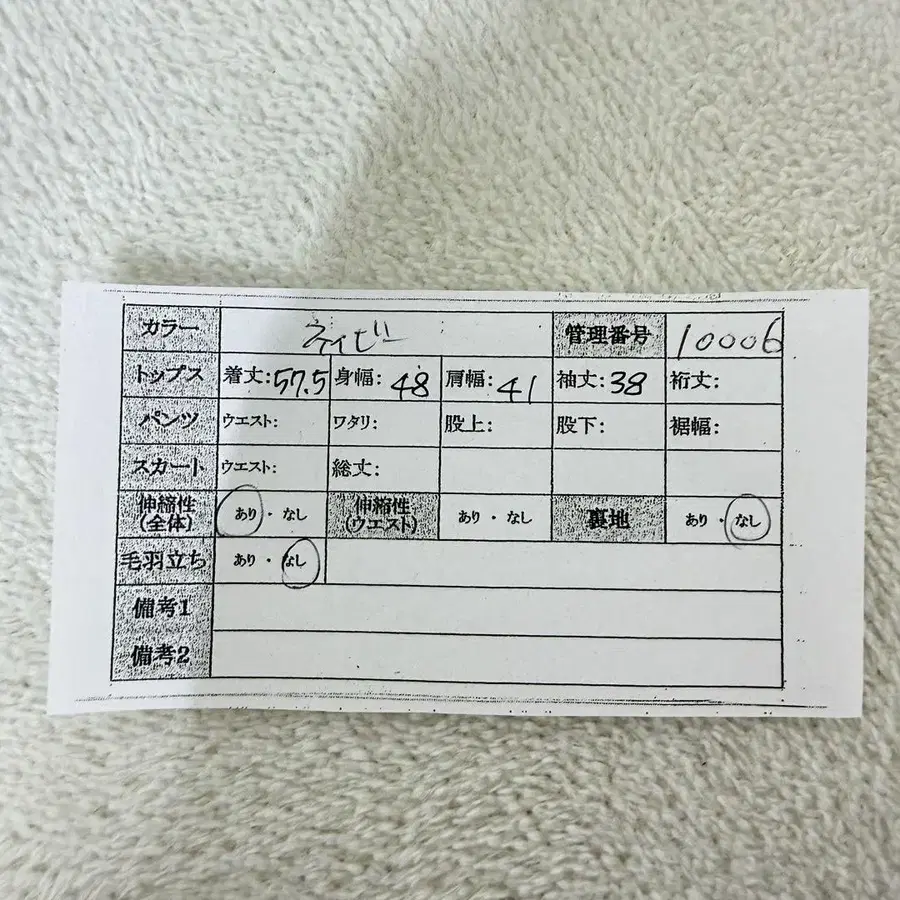 カラー ネイビー 管理番号 10006
トップス 着丈:57.5 身幅:48 肩幅:41 袖丈:38 裄丈:
パンツ ウエスト: ワタリ: 股上: 股下: 裾幅:
スカート ウエスト: 総丈:
伸縮性(全体) あり・なし 伸縮性(ウエスト) あり・なし 裏地 あり・なし
毛羽立ち あり・なし
備考1
備考2